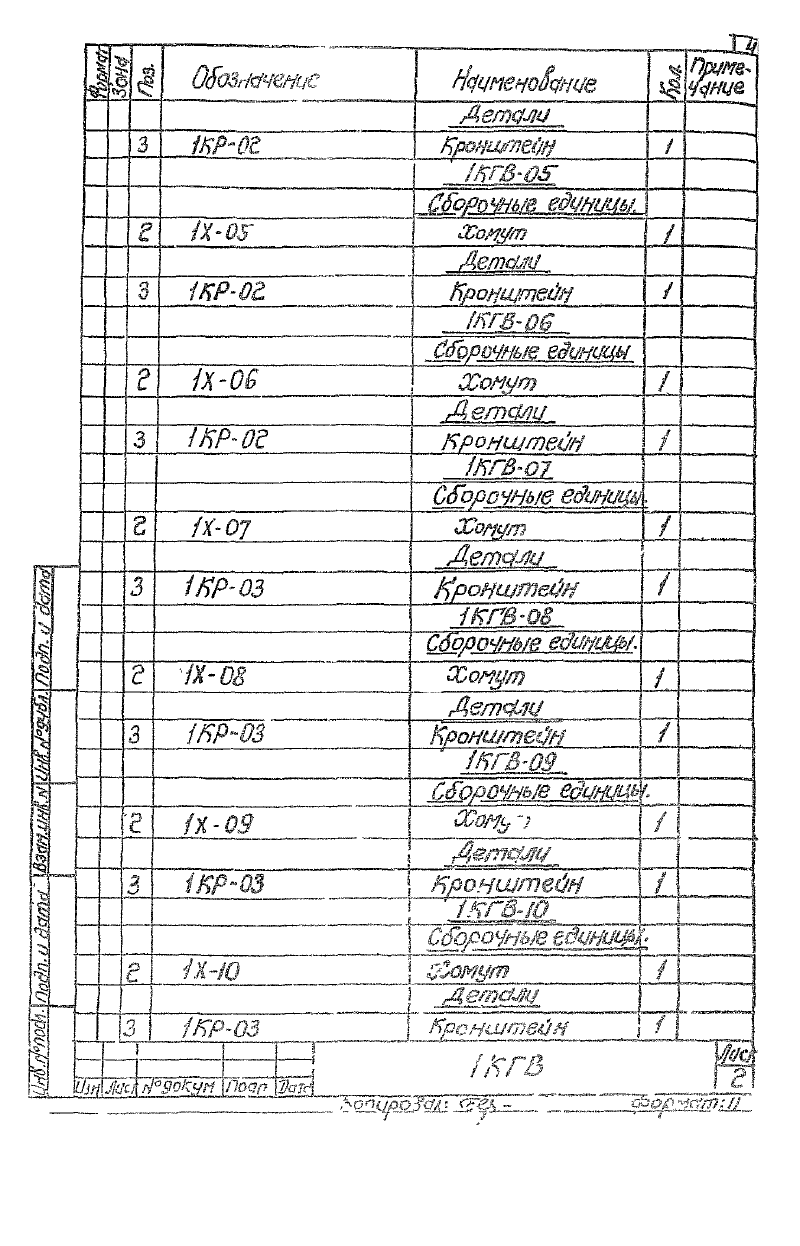 4
Формат Зона Поз. Обозначение Наименование Кол. Приме-чание
Детали
3 1КР-02 Кронштейн 1
1КГВ-05
Сборочные единицы.
2 1Х-05 Хомут 1
Детали
3 1КР-02 Кронштейн 1
1КГВ-06
Сборочные единицы
2 1Х-06 Хомут 1
Детали
3 1КР-02 Кронштейн 1
1КГВ-07
Сборочные единицы.
2 1Х-07 Хомут 1
Детали
3 1КР-03 Кронштейн 1
1КГВ-08
Сборочные единицы.
2 1Х-08 Хомут 1
Детали
3 1КР-03 Кронштейн 1
1КГВ-09
Сборочные единицы.
2 1Х-09 Хому 1
Детали
3 1КР-03 Кронштейн 1
1КГВ-10
Сборочные единицы.
2 1Х-10 Хомут 1
Детали
3 1КР-03 Кронштейн 1
Инв.№подл. Подп. и дата Взам.инв.N Инв.№дубл. Подп. и дата
1КГВ
Лист
2
Изм Лист №докум Подп Дата
Копировал: Формат: 11